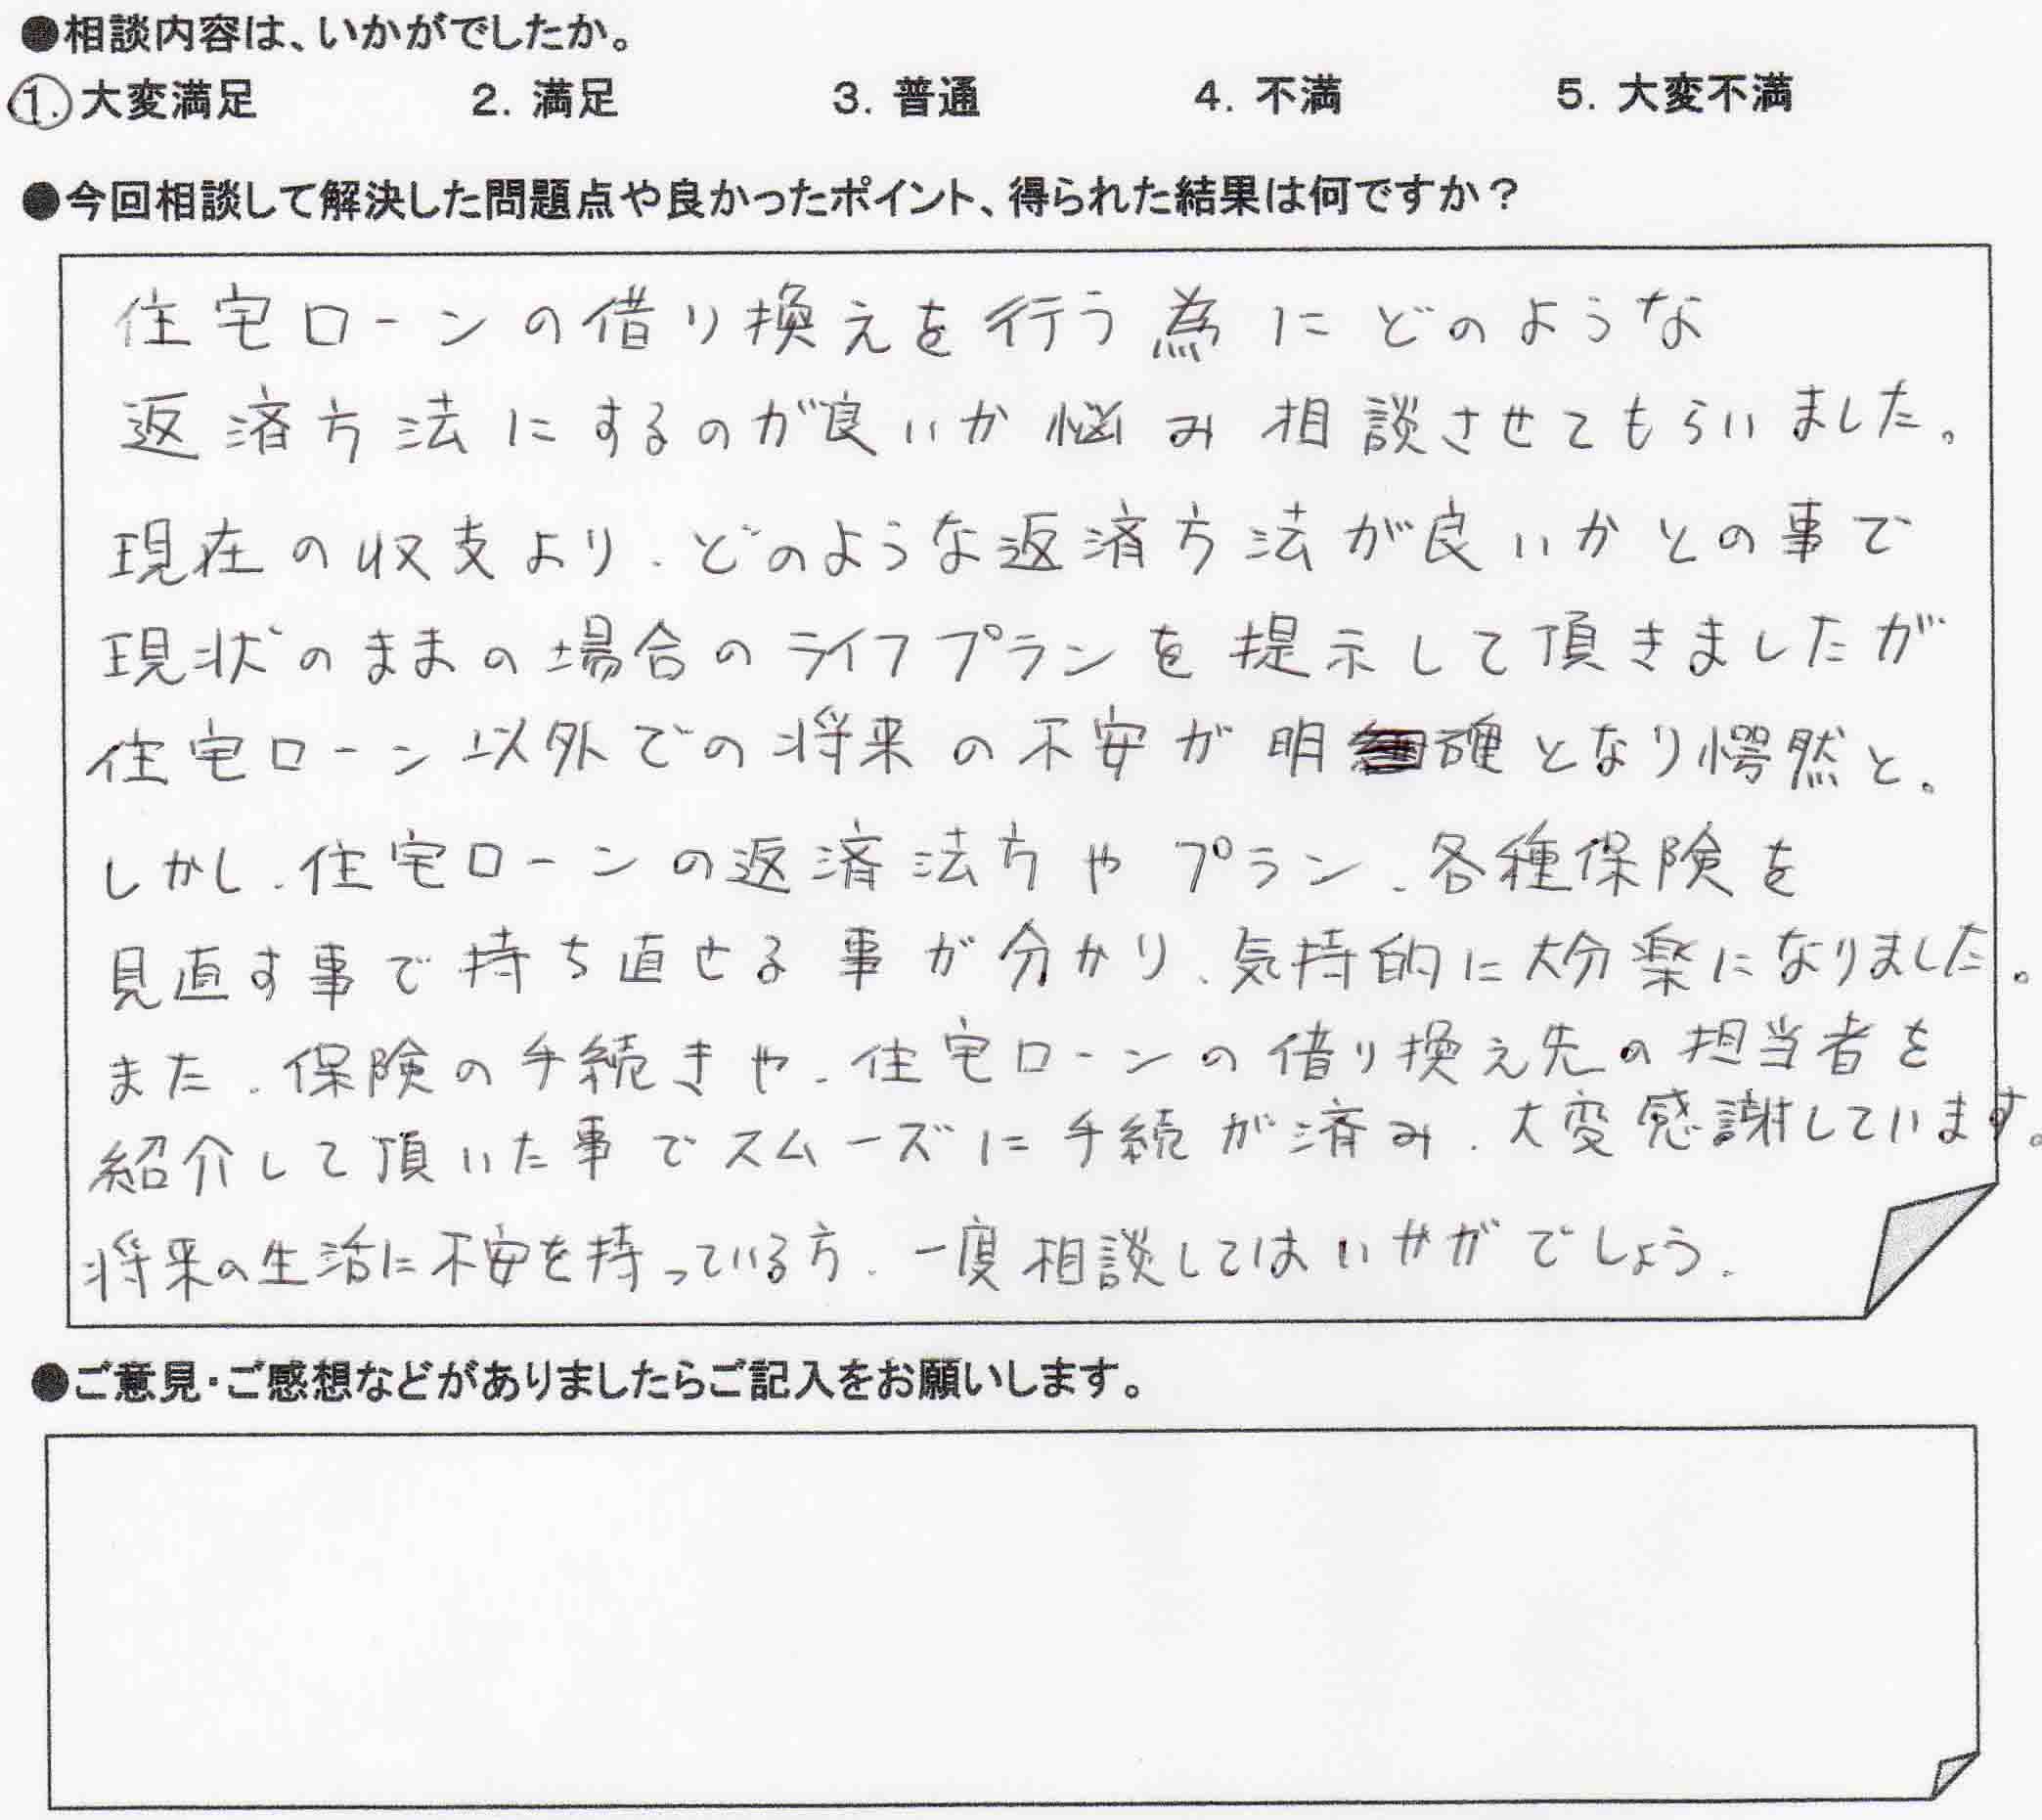 ●相談内容は、いかがでしたか。
1. 大変満足 2. 満足 3. 普通 4. 不満 5. 大変不満
●今回相談して解決した問題点や良かったポイント、得られた結果は何ですか？
住宅ローンの借り換えを行う為にどのような
返済方法にするのが良いか悩み相談させてもらいました。
現在の収支より、どのような返済方法が良いかとの事で
現状のままの場合のライフプランを提示して頂きましたが
住宅ローン以外での将来の不安が明確となり愕然と。
しかし、住宅ローンの返済法方やプラン、各種保険を
見直す事で持ち直せる事が分かり、気持的に大分楽になりました。
また、保険の手続きや、住宅ローンの借り換え先の担当者を
紹介して頂いた事でスムーズに手続が済み、大変感謝しています。
将来の生活に不安を持っている方、一度相談してはいかがでしょう。
●ご意見・ご感想などがありましたらご記入をお願いします。